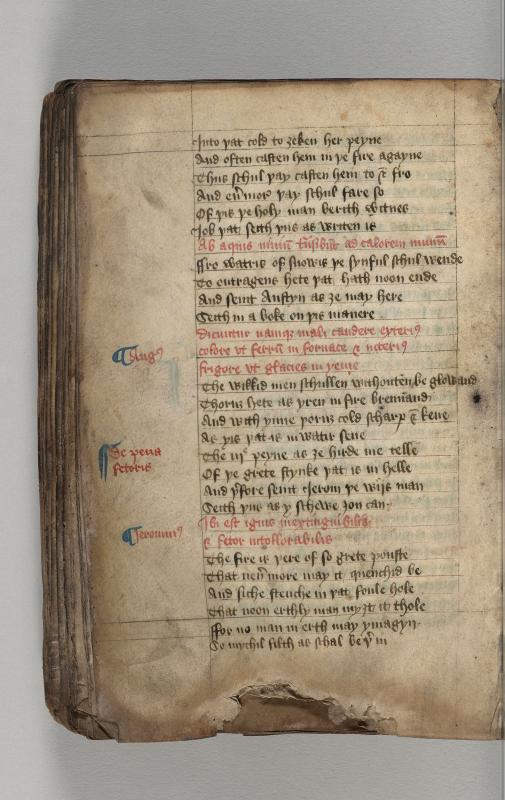 Into þat cold to zeken her peyne
And often casten hem in þe fire agayne
Thus schul þay casten hem to & fro
And eu̅ mor þay schul fare so
Of þis þe holy man berith witnes
Job þat seith þus as writen is
Ab aquis niuiu̅ t̅nsibu̅t ad calorem nimiu̅
ffro watris of snowis þe synful schul wende
To outragens hete þat hath noon ende
And seint Austyn as ȝe may here
Seith in a boke on þis manere
dicuntur namque mali candere exteriꝰ
¶ Augꝰ
colore vt ferru̅ in fornace & interiꝰ
frigore vt glacies in yeme
The wikkid men schullen withouten be glowand
Thoruȝ hete as yren in fire brennand
And with ynne þoruȝ cold scharp & kene
As yis þat is in watir sene
¶ De pena
fetoris
The iijᵉ peyne as ȝe hirde me telle
Of þe grete stynke þat is in helle
And þ̅fore seint Jerom þe wijs man
Seith þus as y schewe ȝou can
Ibi est ignis inextinguibilis
¶ Jeronimꝰ
& fetor intollorabilis
The fire is þere of so grete pouste
That neu̅ more may it quenchid be
And siche stenche in þat foule hole
That noon erthly man myȝt it thole
ffor no man in erth may ymagyn
So mychil filth as schal be þ̅ in